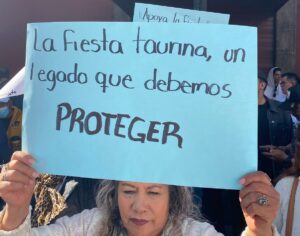 ¡Apoya la fiesta
La fiesta taurina, un
legado que debemos
PROTEGER